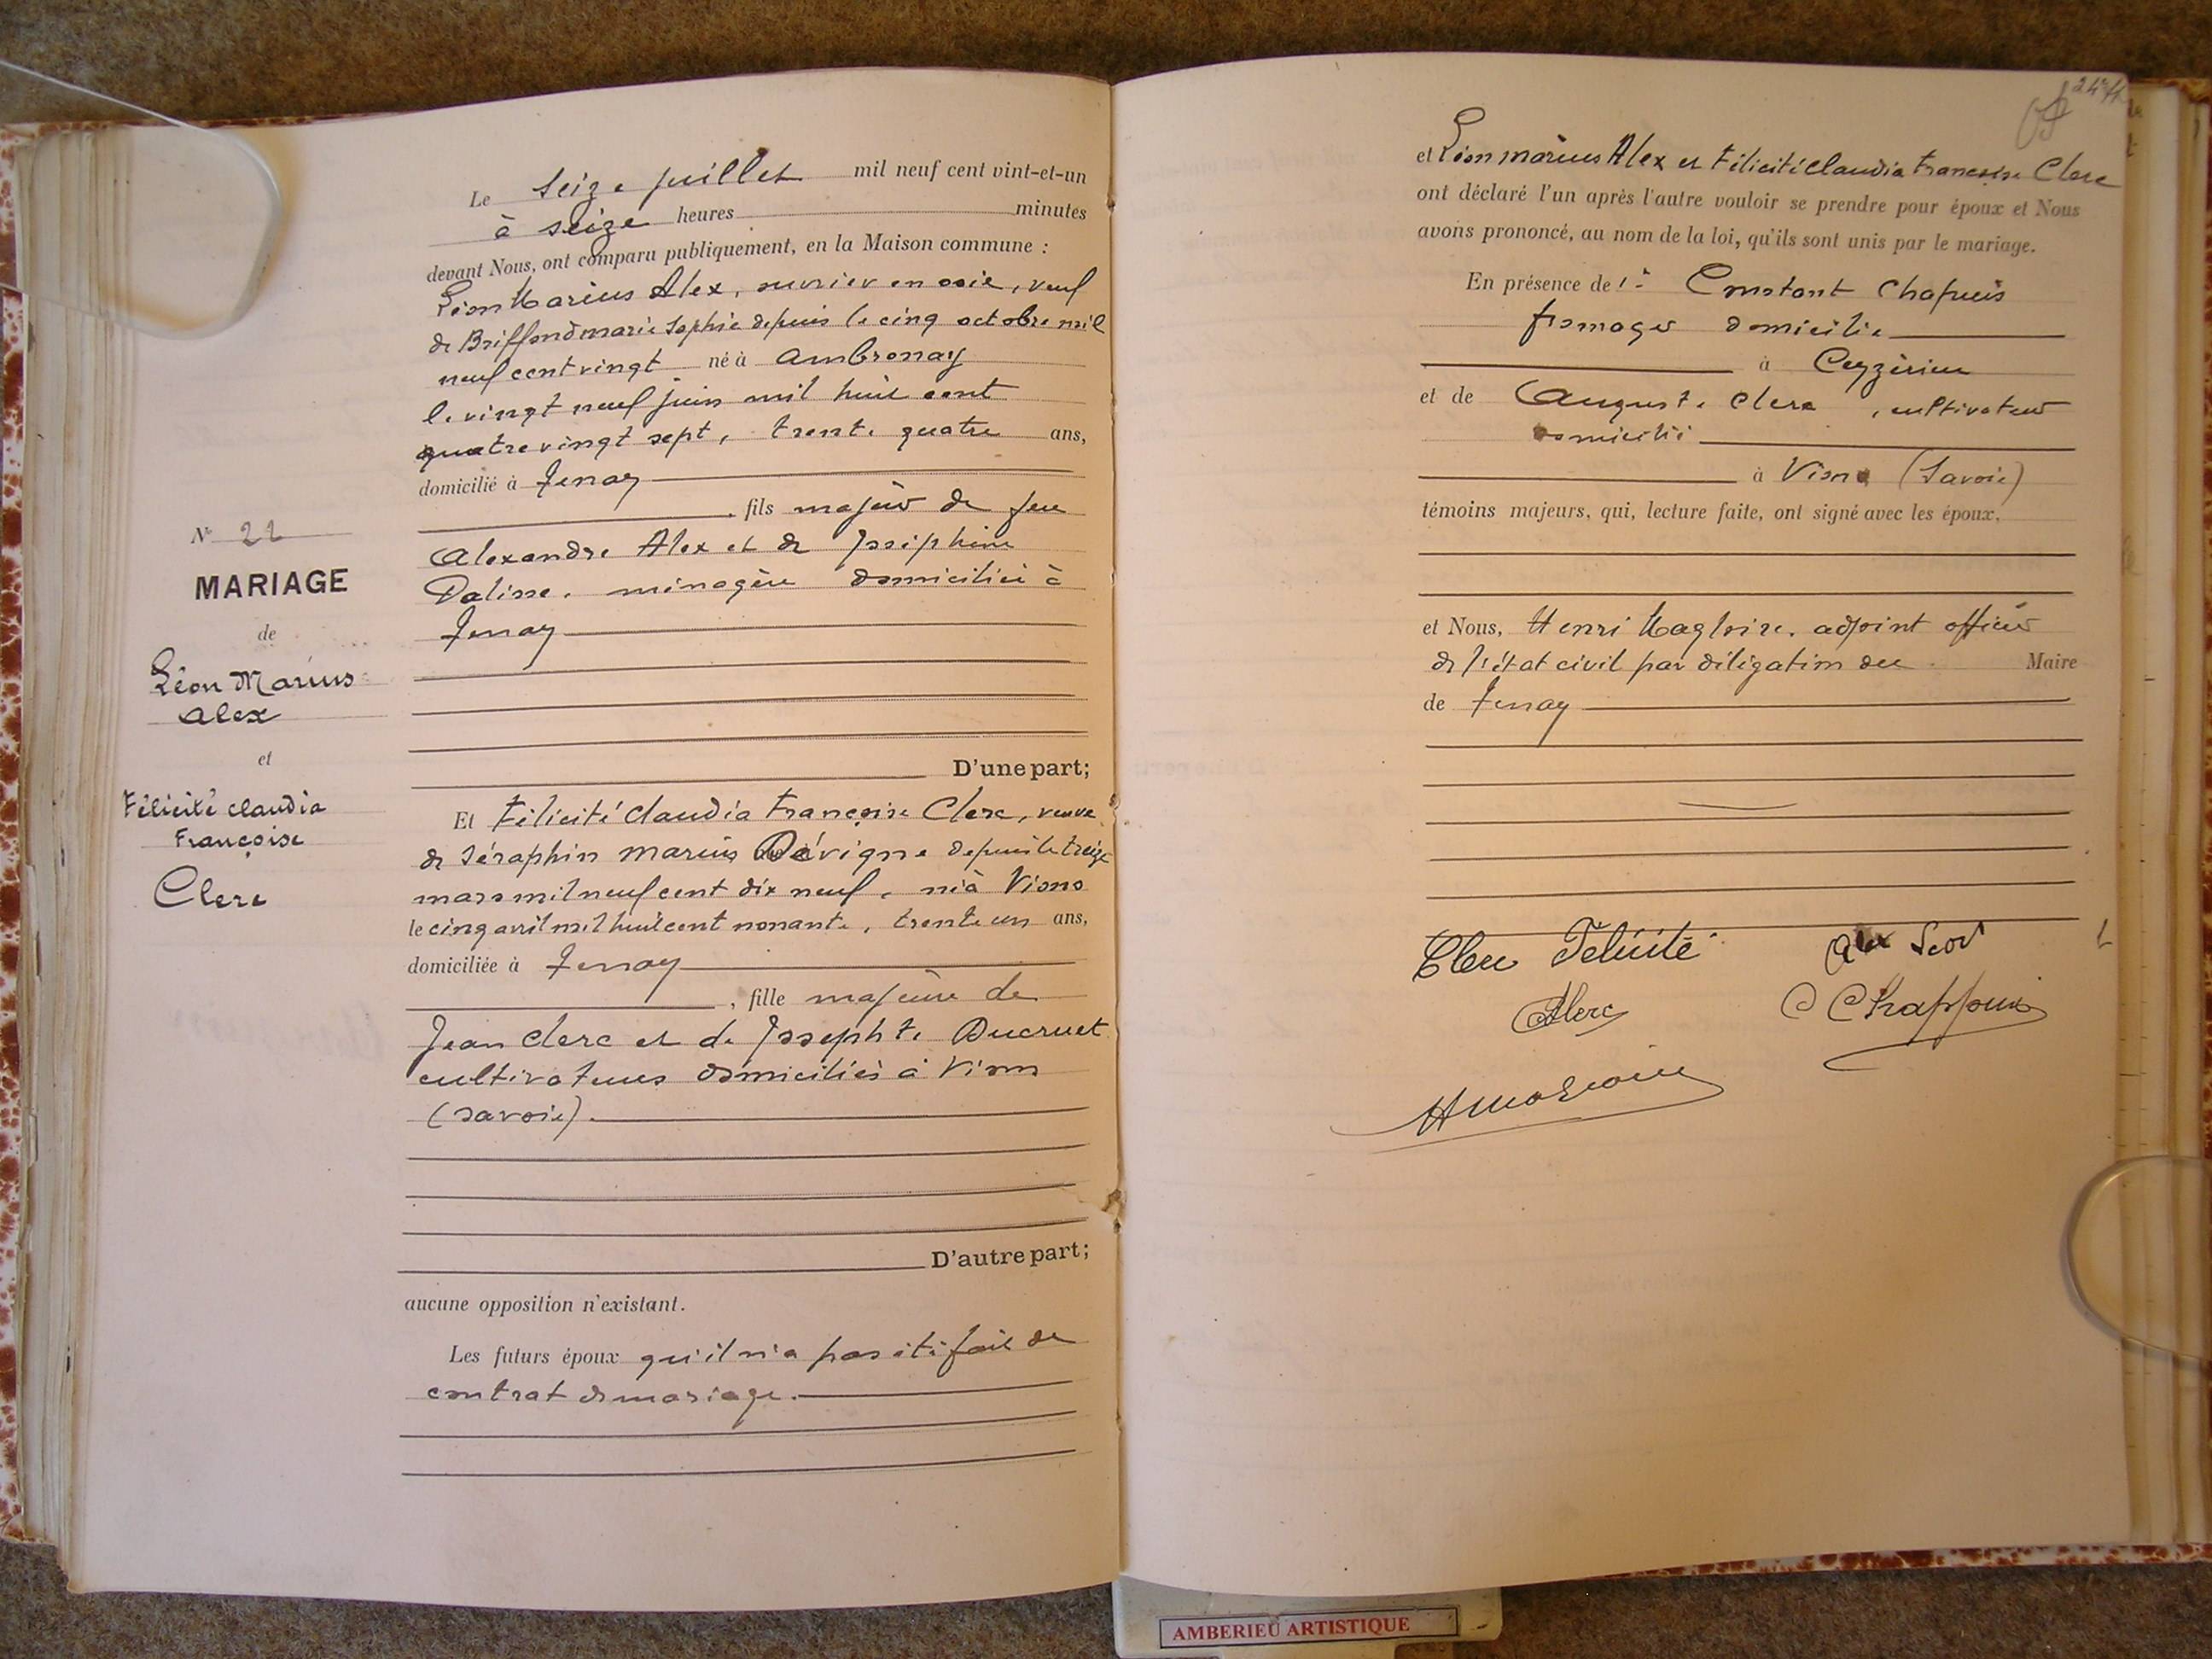 Le seize juillet mil neuf cent vint-et-un
à seize heures minutes
devant Nous, ont comparu publiquement, en la Maison commune :
Léon Marius Alex, ouvrier en soie, veuf
de Briffond marie Sophie depuis le cinq octobre mil
neuf cent vingt né à Ambronay
le vingt neuf juin mil huit cent
quatre vingt sept, trente quatre ans,
domicilié à Tenay
, fils majeur de feu
Alexandre Alex et de Joséphine
ménagère domiciliée à
Tenay
D'une part;
Et Félicité Claudia Françoise Clerc, veuve
de Séraphin Marius Dévigne depuis le treize
mars mil neuf cent dix neuf, née à Vions
le cinq avril mil huit cent nonante, trente un ans,
domiciliée à Tenay
, fille majeure de
Jean Clerc et de Josephte Ducruet
cultivateurs domiciliés à Vions
(Savoie).
D'autre part;
aucune opposition n'existant.
Les futurs époux qu'il n'a pas été fait de
contrat de mariage.
N° 22
MARIAGE
de
Léon Marius
Alex
et
Félicité Claudia
Françoise
Clerc
et Léon Marius Alex et Félicité Claudia Françoise Clerc
ont déclaré l'un après l'autre vouloir se prendre pour époux et Nous
avons prononcé, au nom de la loi, qu'ils sont unis par le mariage.
En présence de 1° Constant Chapuis
fromager domicilié
à Ceyzérieu
et de Auguste Clerc, cultivateur
domicilié
à Vions (Savoie)
témoins majeurs, qui, lecture faite, ont signé avec les époux,
et Nous, Henri Magloire, adjoint officier
de l'état civil par délégation du Maire
de Tenay
Clerc Félicité Alex Léon
AClerc C Chappuis
HMagloire
AMBERIEU ARTISTIQUE